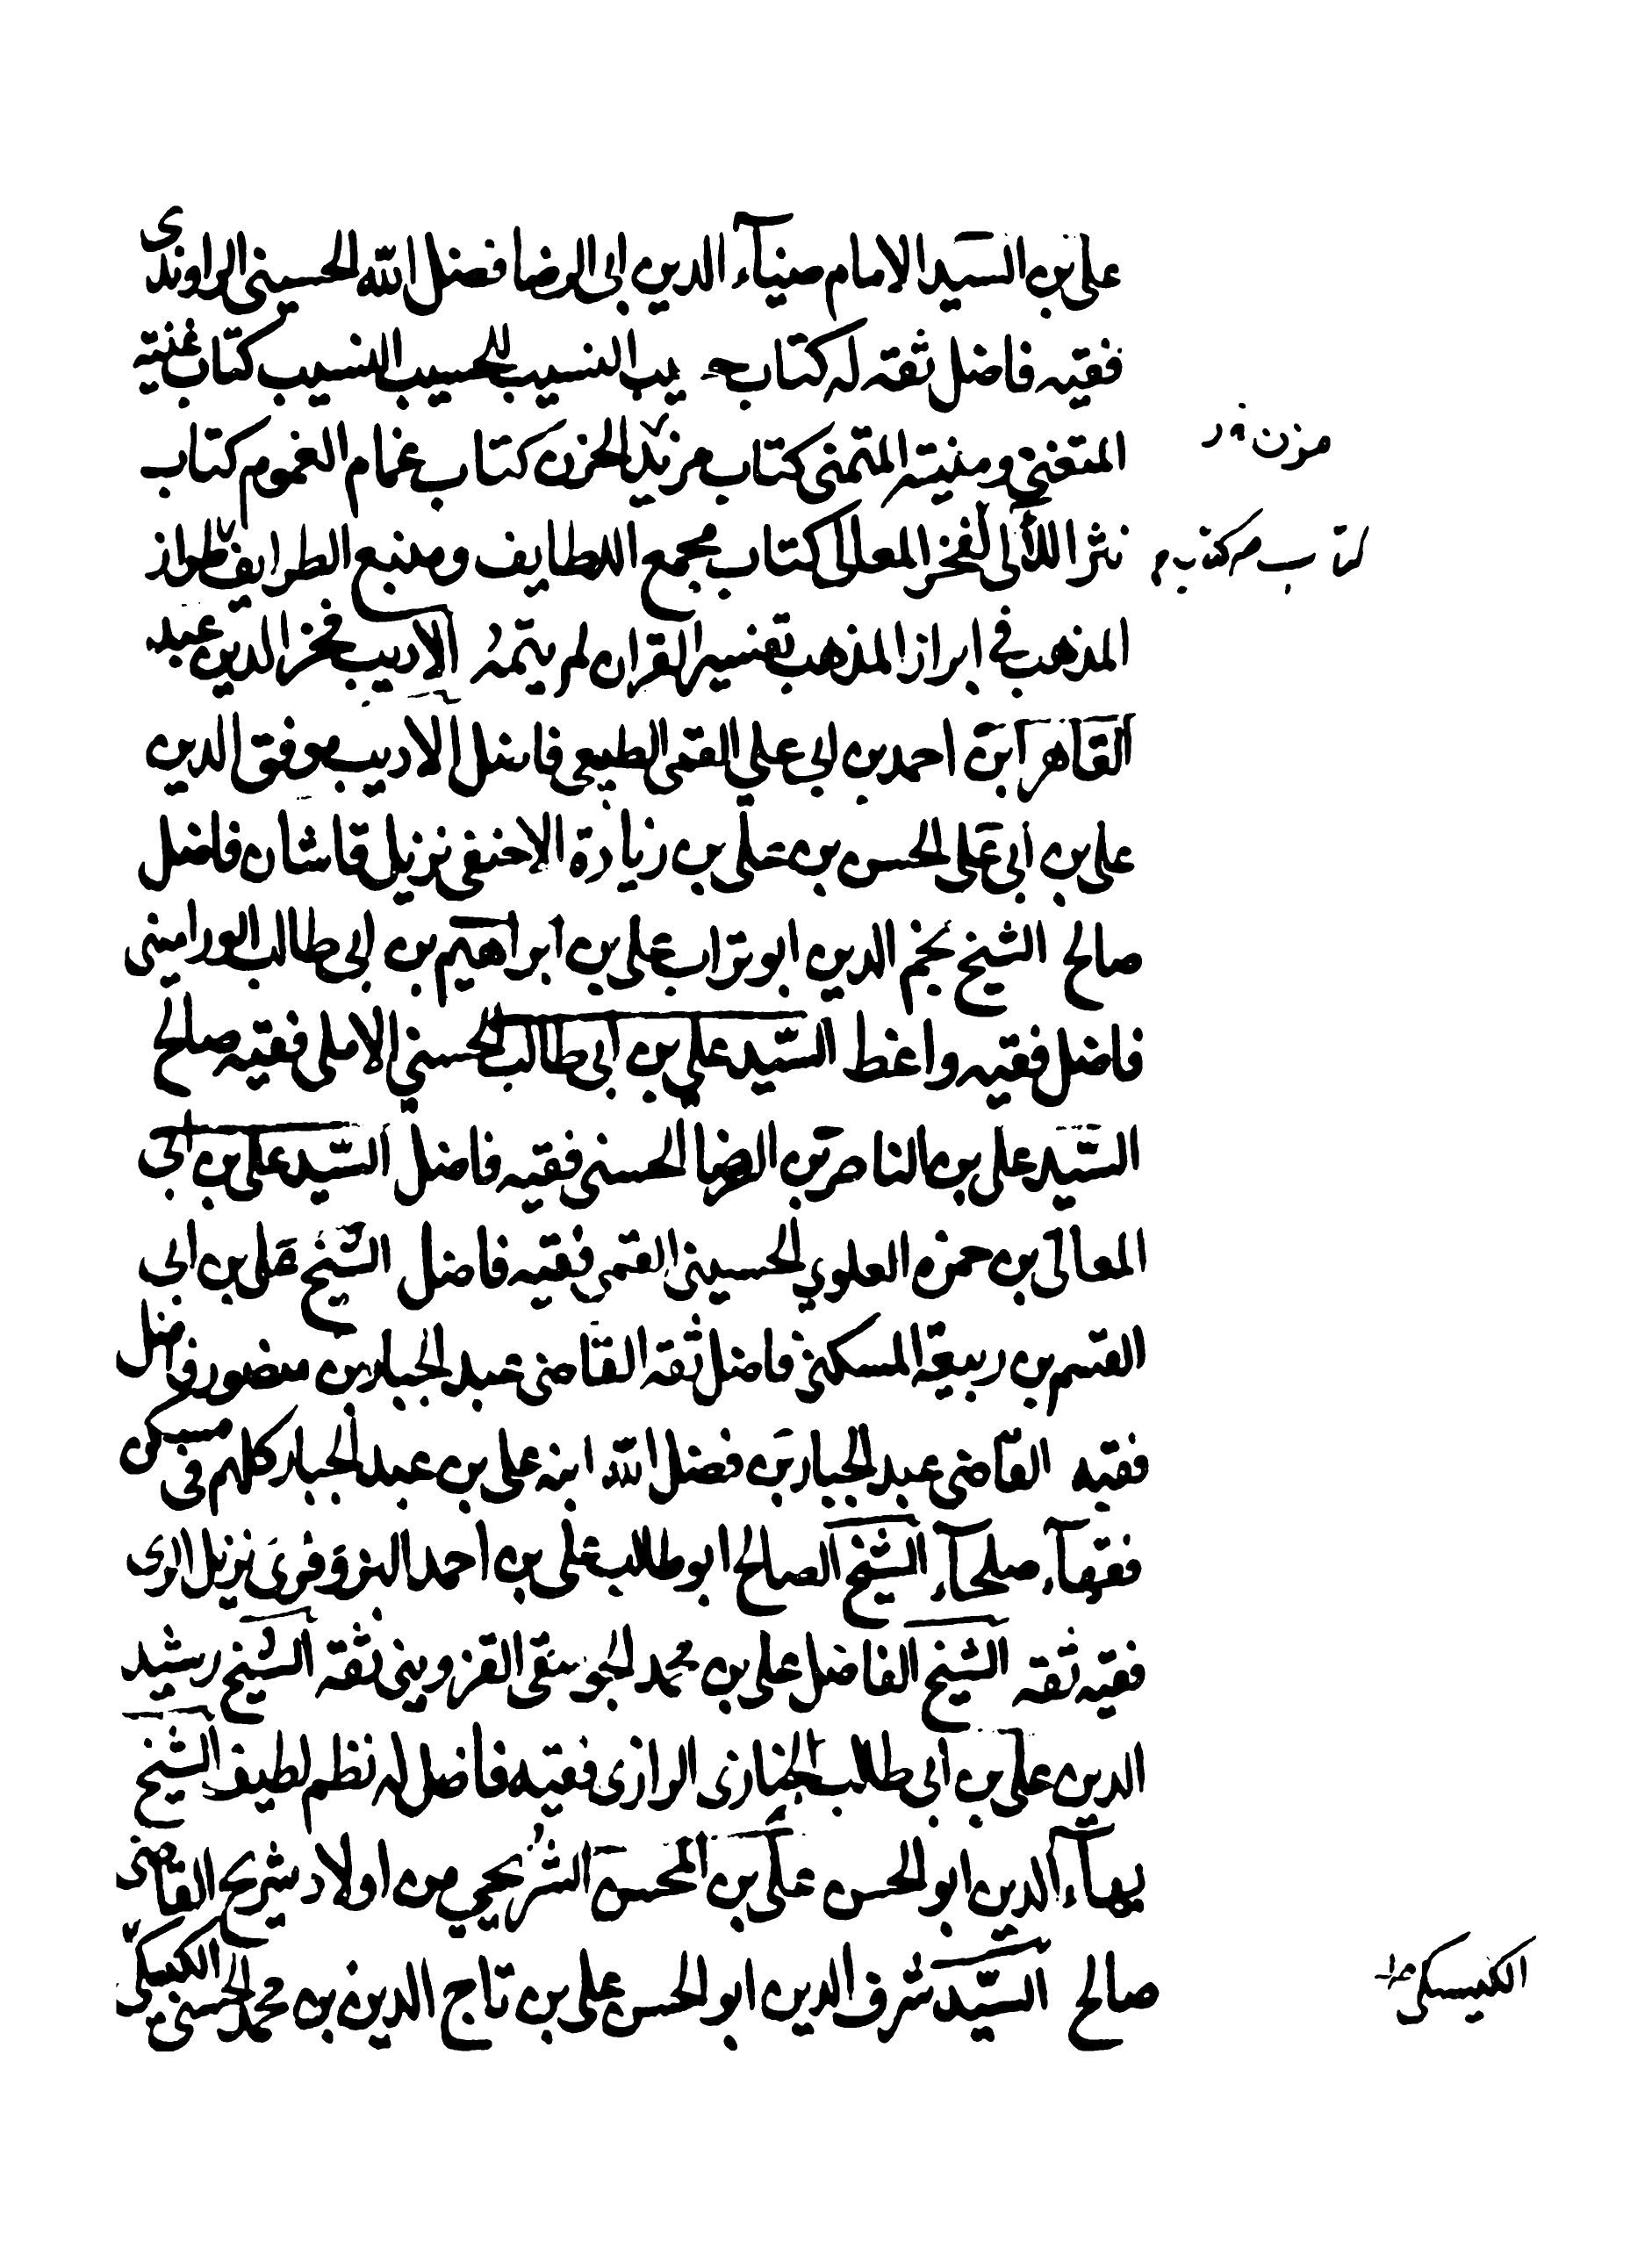 علي بن السيد الامام ضيآء الدين ابى الرضا فضل الله الحسينى الراوندى
فقيه فاضل ثقه له كتاب حسيب النسيب للحسيب النسيب كتاب غنية
المتغني ومنية المتمنى كتاب مزيد الحزن كتاب غمام الغموم كتاب
مزن
نثر اللآلى لفخر المعالى كتاب مجمع اللطايف ومنبع الطرايف طراز
المذهب في ابراز المذهب تفسير القران لم يتمهُ الاديب فخر الدين عبد
القاهر ابن احمد بن ابي علي القمى الطبيعى فاضل الاديب موفق الدين
علي بن أبي علي الحسن بن علي بن زيادة الاحنفى نزيل قاشان فاضل
صالح الشيخ نجم الدين ابو تراب علي بن ابراهيم بن ابي طالب الورامينى
فاضل فقيه واعظ السيد علي بن ابي طالب الحسني الاملى فقيه صالح
السيد علي بن الناصر بن الرضا الحسنى فقيه فاضل السيد علي بن ابي
المعالي بن حمزه العلوي الحسينى القمى فقيه فاضل الشيخ علي بن ابي
القسم بن ربيعة المسكنى فاضل ثقه القاضى عبد الجبار بن منصور فاضل
فقيه القاضى عبد الجبار بن فضل الله ابنه علي بن عبد الجبار كلهم فى مسكن
فقهآء صلحآء الشيخ الصالح ابو طالب علي بن احمد البزوفرى نزيل الرى
فقيه ثقه الشيخ الفاضل علي بن محمد الجوسقى القزوينى ثقة الشيخ رشيد
الدين علي بن ابى طالب الخبازى الرازى فقيه فاضل له نظم لطيف الشيخ
بهآء الدين ابو الحسن علي بن المحسن الشريحي من اولاد شريح القاضى
صالح السيد شرف الدين ابو الحسن علي بن تاج الدين بن محمد الحسنى الكيسكى
الكيسكى